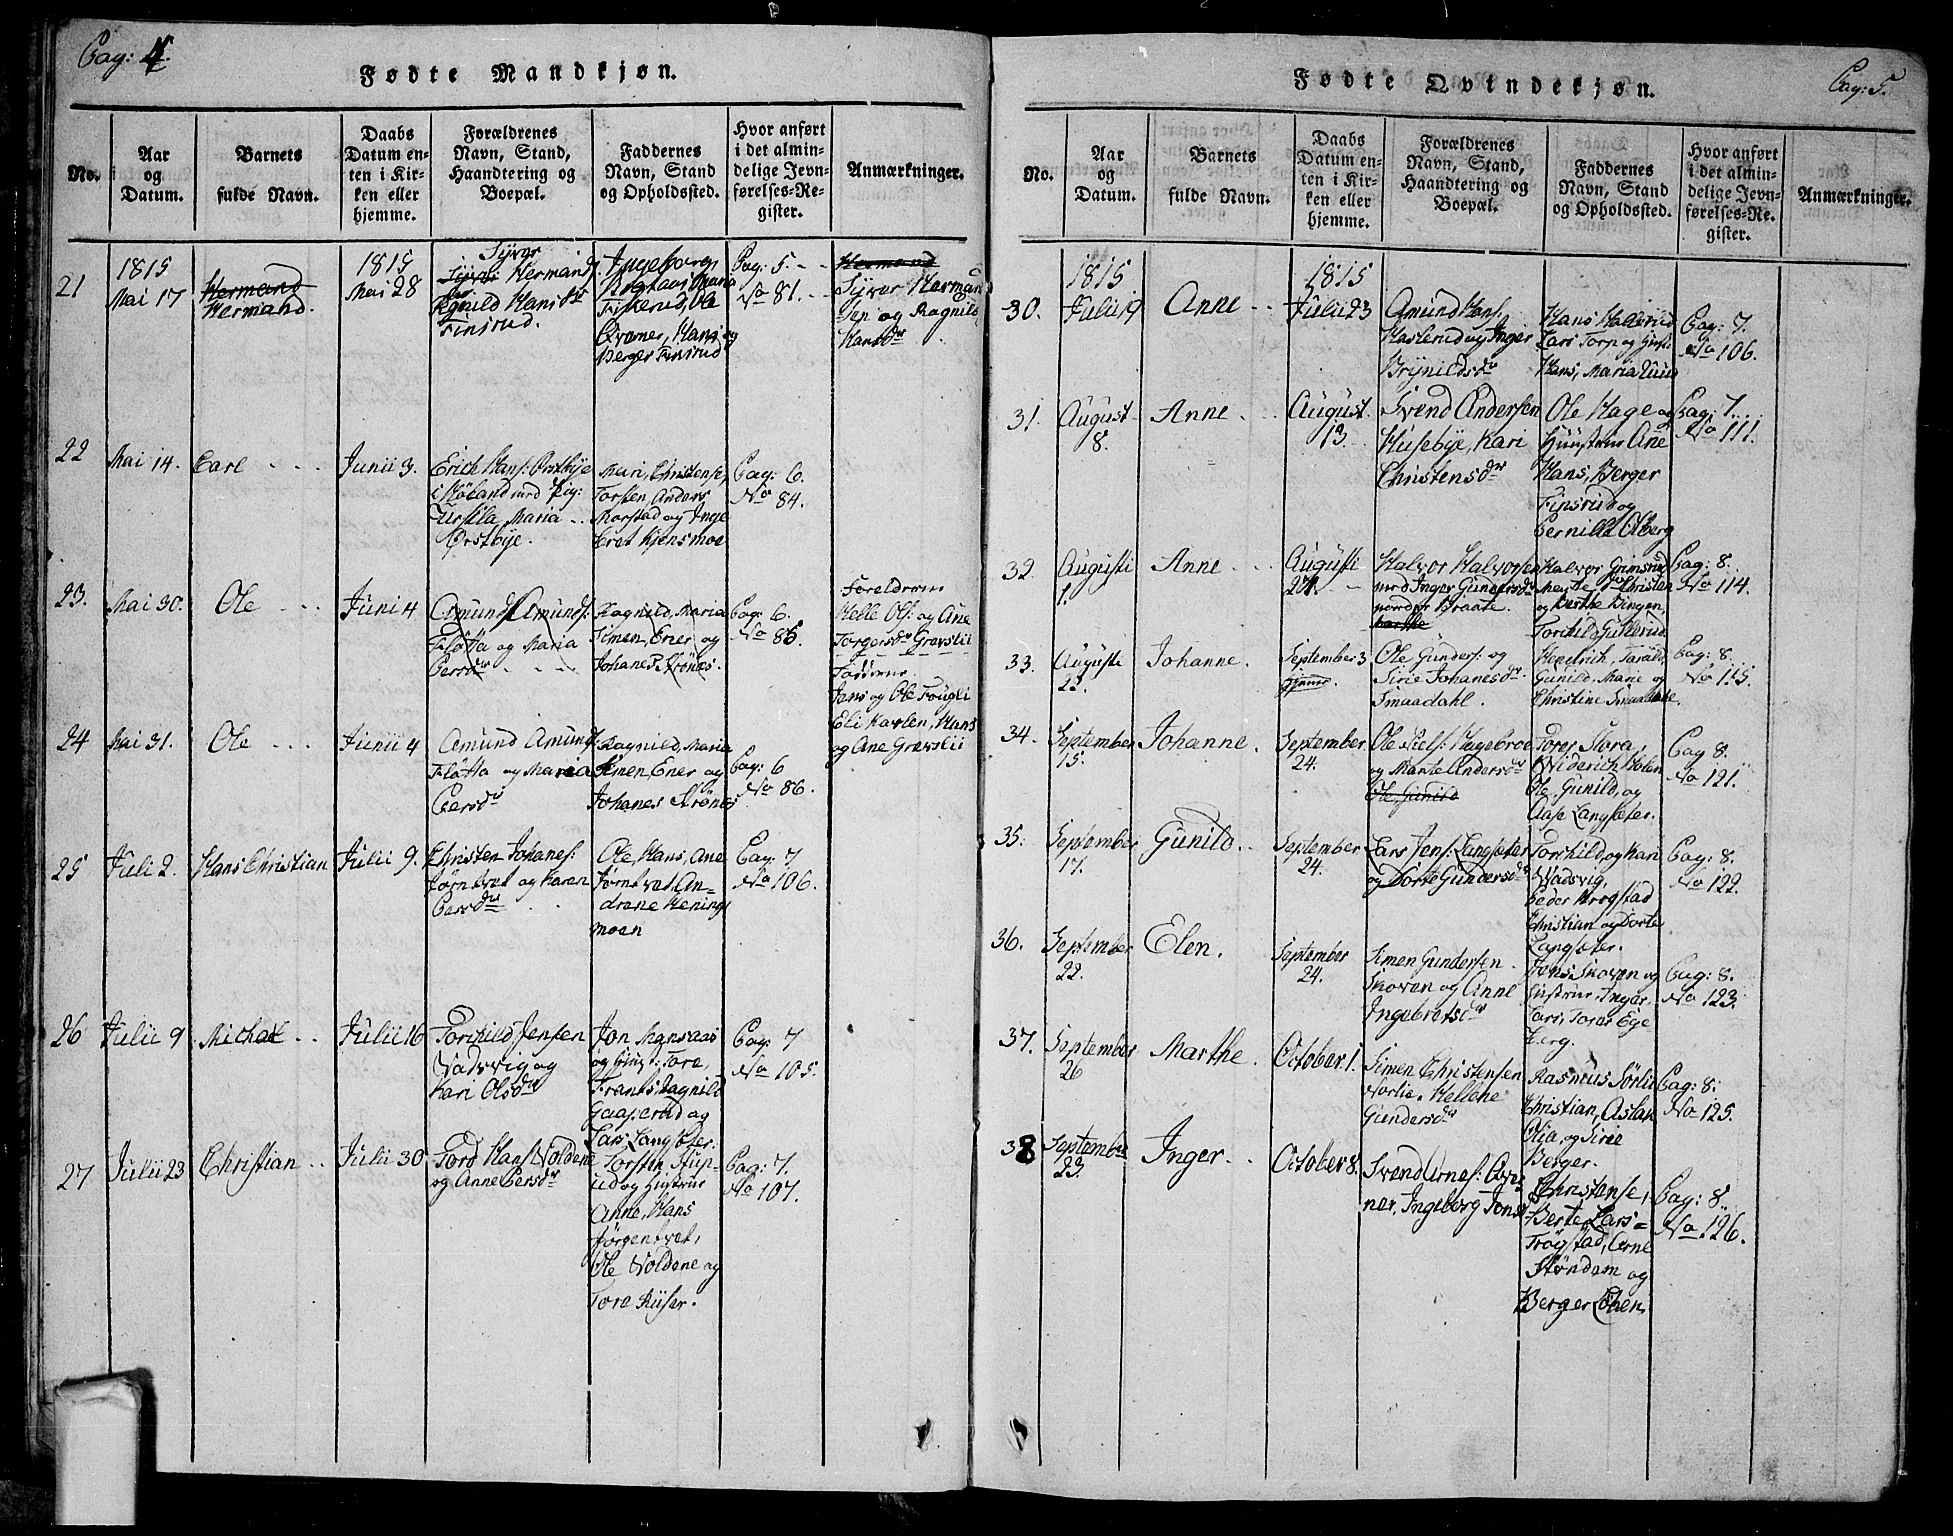 Pag: 4.
Fødte Mandkjøn.
No.
Aar
og
Datum.
Barnets
fulde Navn.
Daabs
Datum en-
ten i Kir-
ken eller
hjemme.
Forældrenes
Navn, Stand,
Haandtering og
Boepæl.
Faddernes
Navn, Stand
og Opholdssted.
Hvor anført
i det almin-
delige Jevn-
førelses-Re-
gister.
Anmærkninger.
21
1815
Mai 17
Hermand
Hermand.
1815
Mai 28
Syver
Hermands.
Ragnild Hansdr
Finsrud.
Ingeborg
Maria
Ole
Qverner, Hans og
Berger Finsrud
Pag: 5.
No 81.
Hermand
Syver Herman
sen og Ragnild
Hansdr
22
Mai 14.
Carl
Junii 3.
Erich Hans: Ørstbye
i Høland med Pig:
Maria
Ørstbye.
Mari, Christense,
Torsten, Anders
Morstad og Inge
bret Kjensmoe
Pag: 6.
No 84.
23.
Mai 30.
Ole
Juni 4
Amund Amunds:
Fløtta og Maria
Persdr
Ragnild, Maria
Simen, Ener og
Johanes Strønes.
Pag: 6.
No 85
Foreldrene
Helle Ols: og Ane
Torgersdr Gravslii
Fadderne
Jens og Ole Fougli
Eli Karlen, Hans
og Ane Gravslii
24
Mai 31.
Ole
Junii 4
Amund Amunds:
Fløtta og Maria
Persdr
Ragnild, Maria
Simen, Ener og
Johanes Strønes
Pag: 6
No 86.
25
Juli 2.
Hans Christian
Julii 9.
Christen Johanes:
Jørntvet og Karen
Persdr
Ole, Hans, Ane
Jørntvet, An-
drene Henings
moen
Pag: 7
No 106.
26
Julii 9
Michal
Julii 16
Torchild Jensen
Vadsvig og
Kari Olsdr
Jon Monsaas
og Gunil: Tore,
Frants, Ragnild
Gaaserud og
Lars Langsæter.
Pag: 7
No 105.
27
Julii 23
Christian
Julii 30
Tord Hans: Voldene
og Anne Persdr
Torsten Stup-
ud og Hustrue
Anne, Hans
Jørgentvet,
Ole Voldene og
Tore Riiser.
Pag: 7.
No 107.
Pag: 5.
Fødte Qvindekjøn.
No.
Aar
og
Datum.
Barnets
fulde Navn.
Daabs
Datum en-
ten i Kir-
ken eller
hjemme.
Forældrenes
Navn, Stand,
Haandtering og
Boepæl.
Faddernes
Navn, Stand
og Opholdssted.
Hvor anført
i det almin-
delige Jevn-
førelses-Re-
gister.
Anmærkninger.
30.
1815
Julii 9
Anne
1815
Julii 23
Amund Hans:
Haslerud og Inger
Brynildsdr
Hans Hallerud
Lars Torp og
Hans, Maria Lund
Pag: 7.
No 106.
31.
August
8.
Anne
August
13.
Svend Andersen
Husebye, Kari
Christensdr
Ole Hage og
Huustrue Ane
Hans, Berger
Finsrud og
Pernille Olberg
Pag: 7.
No 111.
32.
Augusti
1.
Anne
Augusti
27.
Halvor Halvorsen
med Inger Gundersdr
Braate.
Halvor Grimsrud
Christen
og Berthe Bingen,
Torchild Gullerud
Pag: 8.
No 114.
33.
Augusti
23.
Johanne.
September 3
hjemme.
Ole Gunders: og
Sirie Johanesdr
Smaadahl.
Hendrich, Tarald,
Gunild, Marie og
Christine Smaadahl.
Pag: 8.
No 115.
34.
September
15.
Johanne.
September
24.
Ole Niels: Hagebroe
og Marte Andersdr
Ole, Gunild
Tores Stora,
Diderich Holen
Ole, Gunild, og
Aase Langsæter.
Pag 8.
No 121.
35.
September
17.
Gunild.
September
24.
Lars Jens: Langsæter
og Dorte Gundersdr
Torchild, og Kari
Vadsvig,
Peder Krogstad
Christian og Dorte
Langsæter.
Pag: 8.
No 122.
36.
September
22.
Elen.
September
24.
Simen Gundersen
Skoven og Anne
Ingebretsdr
Jens Skoven og
Hustrue, Inger,
Lars, Tores Ege
berg.
Pag: 8.
No 123.
37.
September
26
Marthe.
October 1.
Simen Christensen
Sorlie. Hellene
Gundersdr
Rasmus Sørlie
Christian, Aslak
Olia, og Sirie
Berger.
Pag: 8.
No 125.
38
September
23.
Inger.
October 8.
Svend Arnes: Qver
ner, Ingeborg Jonsd
Christense,
Berte Lars-
Trøgstad, Arne
Støndem og
Berger Løken.
Pag: 8.
No 126.